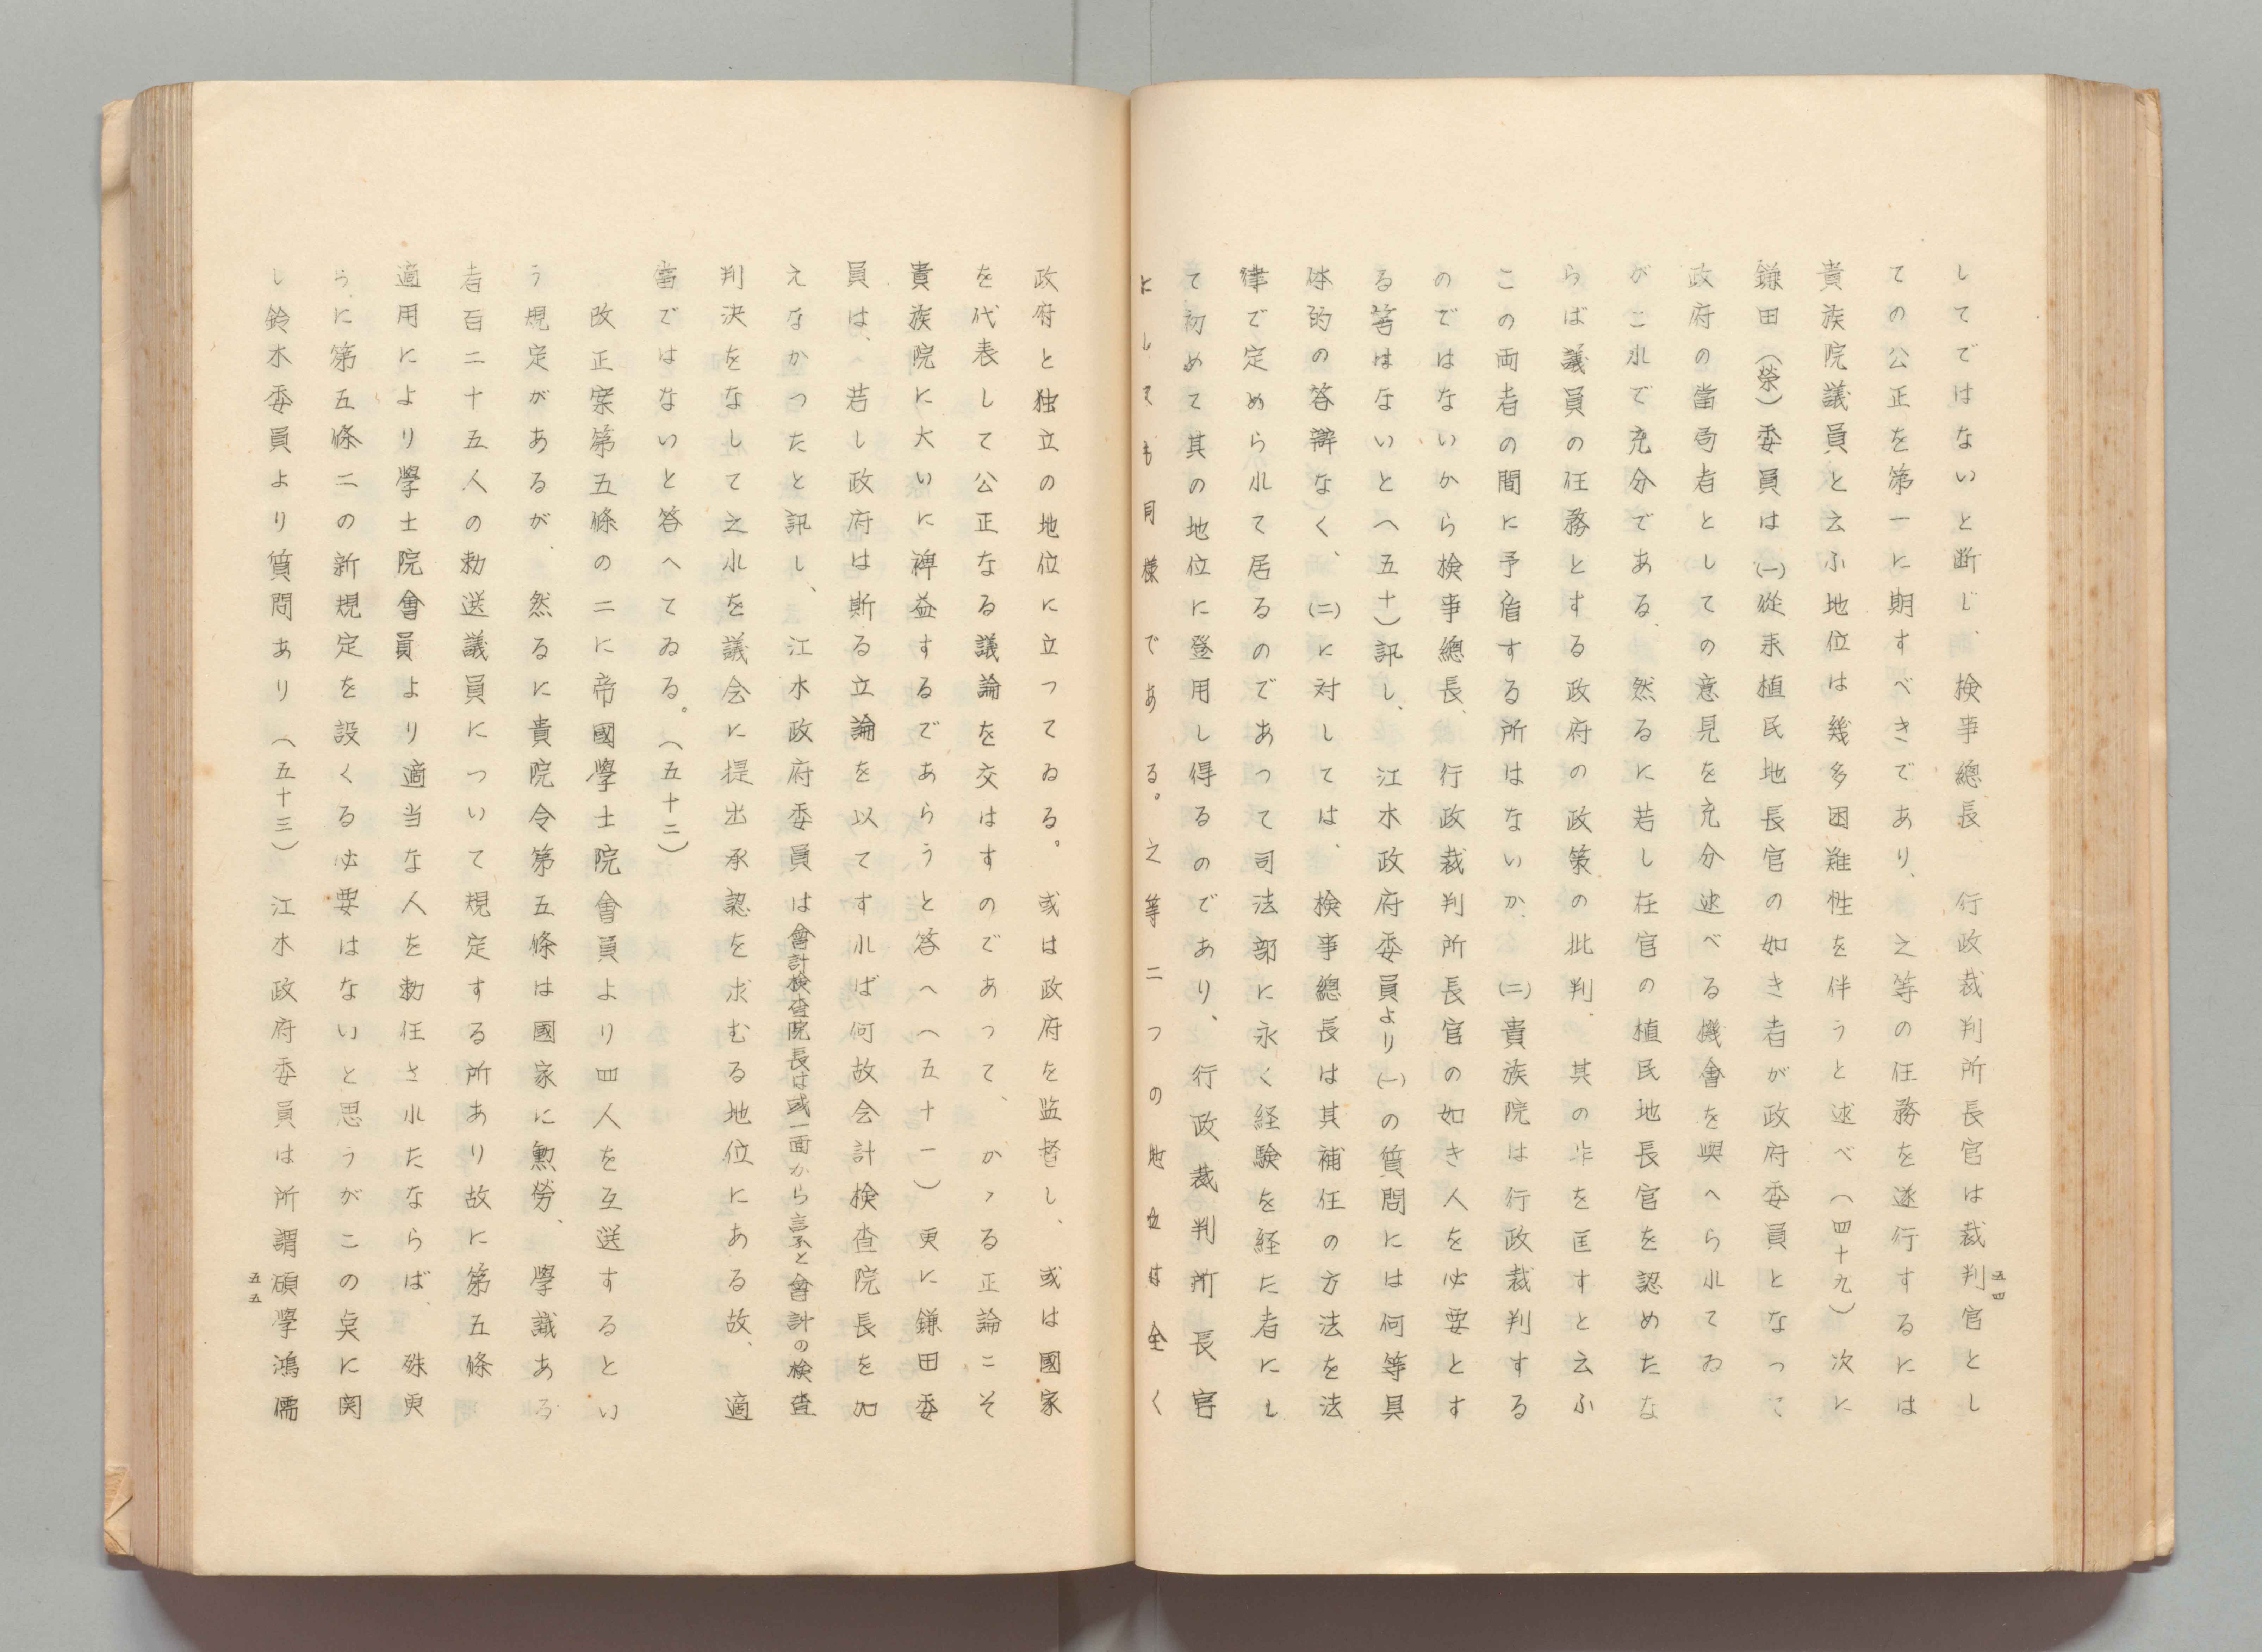 してではないと断じ、検事總長、行政裁判所長官は裁判官とし
ての公正を第一に期すべきであり、之等の任務を遂行するには
貴族院議員と云ふ地位は幾多困難性を伴うと述べ（四十九）次に
鎌田（榮）委員は㈠從来植民地長官の如き者が政府委員となつて
政府の當局者としての意見を充分述べる機會を與へられてゐ
がこれで充分である、然るに若し在官の植民地長官を認めたな
らば議員の任務とする政府の政策の批判、其の非を匡すと云ふ
この両者の間に予盾する所はないか、㈡貴族院は行政裁判する
のではないから検事總長、行政裁判所長官の如き人を必要とす
る筈はないと（五十）訊し、江木政府委員より㈠の質問には何等具
体的の答辯なく、㈡に対しては、検事總長は其補任の方法を法
律で定められて居るのであつて司法部に永く経験を経た者にし
て初めて其の地位に登用し得るのであり、行政裁判所長官
にしても同様である。之等二つの地位は全く
五四
政府と独立の地位に立つてゐる。或は政府を監督し、或は國家
を代表して公正なる議論を交はすのであつて、かゝる正論こそ
貴族院に大いに裨益するであらうと答へ（五十一）更に鎌田委
員は、へ若し政府は斯る立論を以てすれば何故会計検査院長を加
えなかつたと訊し、江木政府委員は會計検査院長は或一面から言ふと會計の検査
判決をなして之れを議会に提出承認を求むる地位にある故、適
當ではないと答へてゐる。（五十二）
改正案第五條の二に帝國學士院會員より四人を互選するとい
う規定があるが、然るに貴院令第五條は國家に勲勞、學識ある
者百二十五人の勅選議員について規定する所あり故に第五條
適用により學士院會員より適当な人を勅任されたならば、殊更
らに第五條二の新規定を設くる必要はないと思うがこの点に関
し鈴木委員より質問あり（五十三）江木政府委員は所謂碩學鴻儒
五五